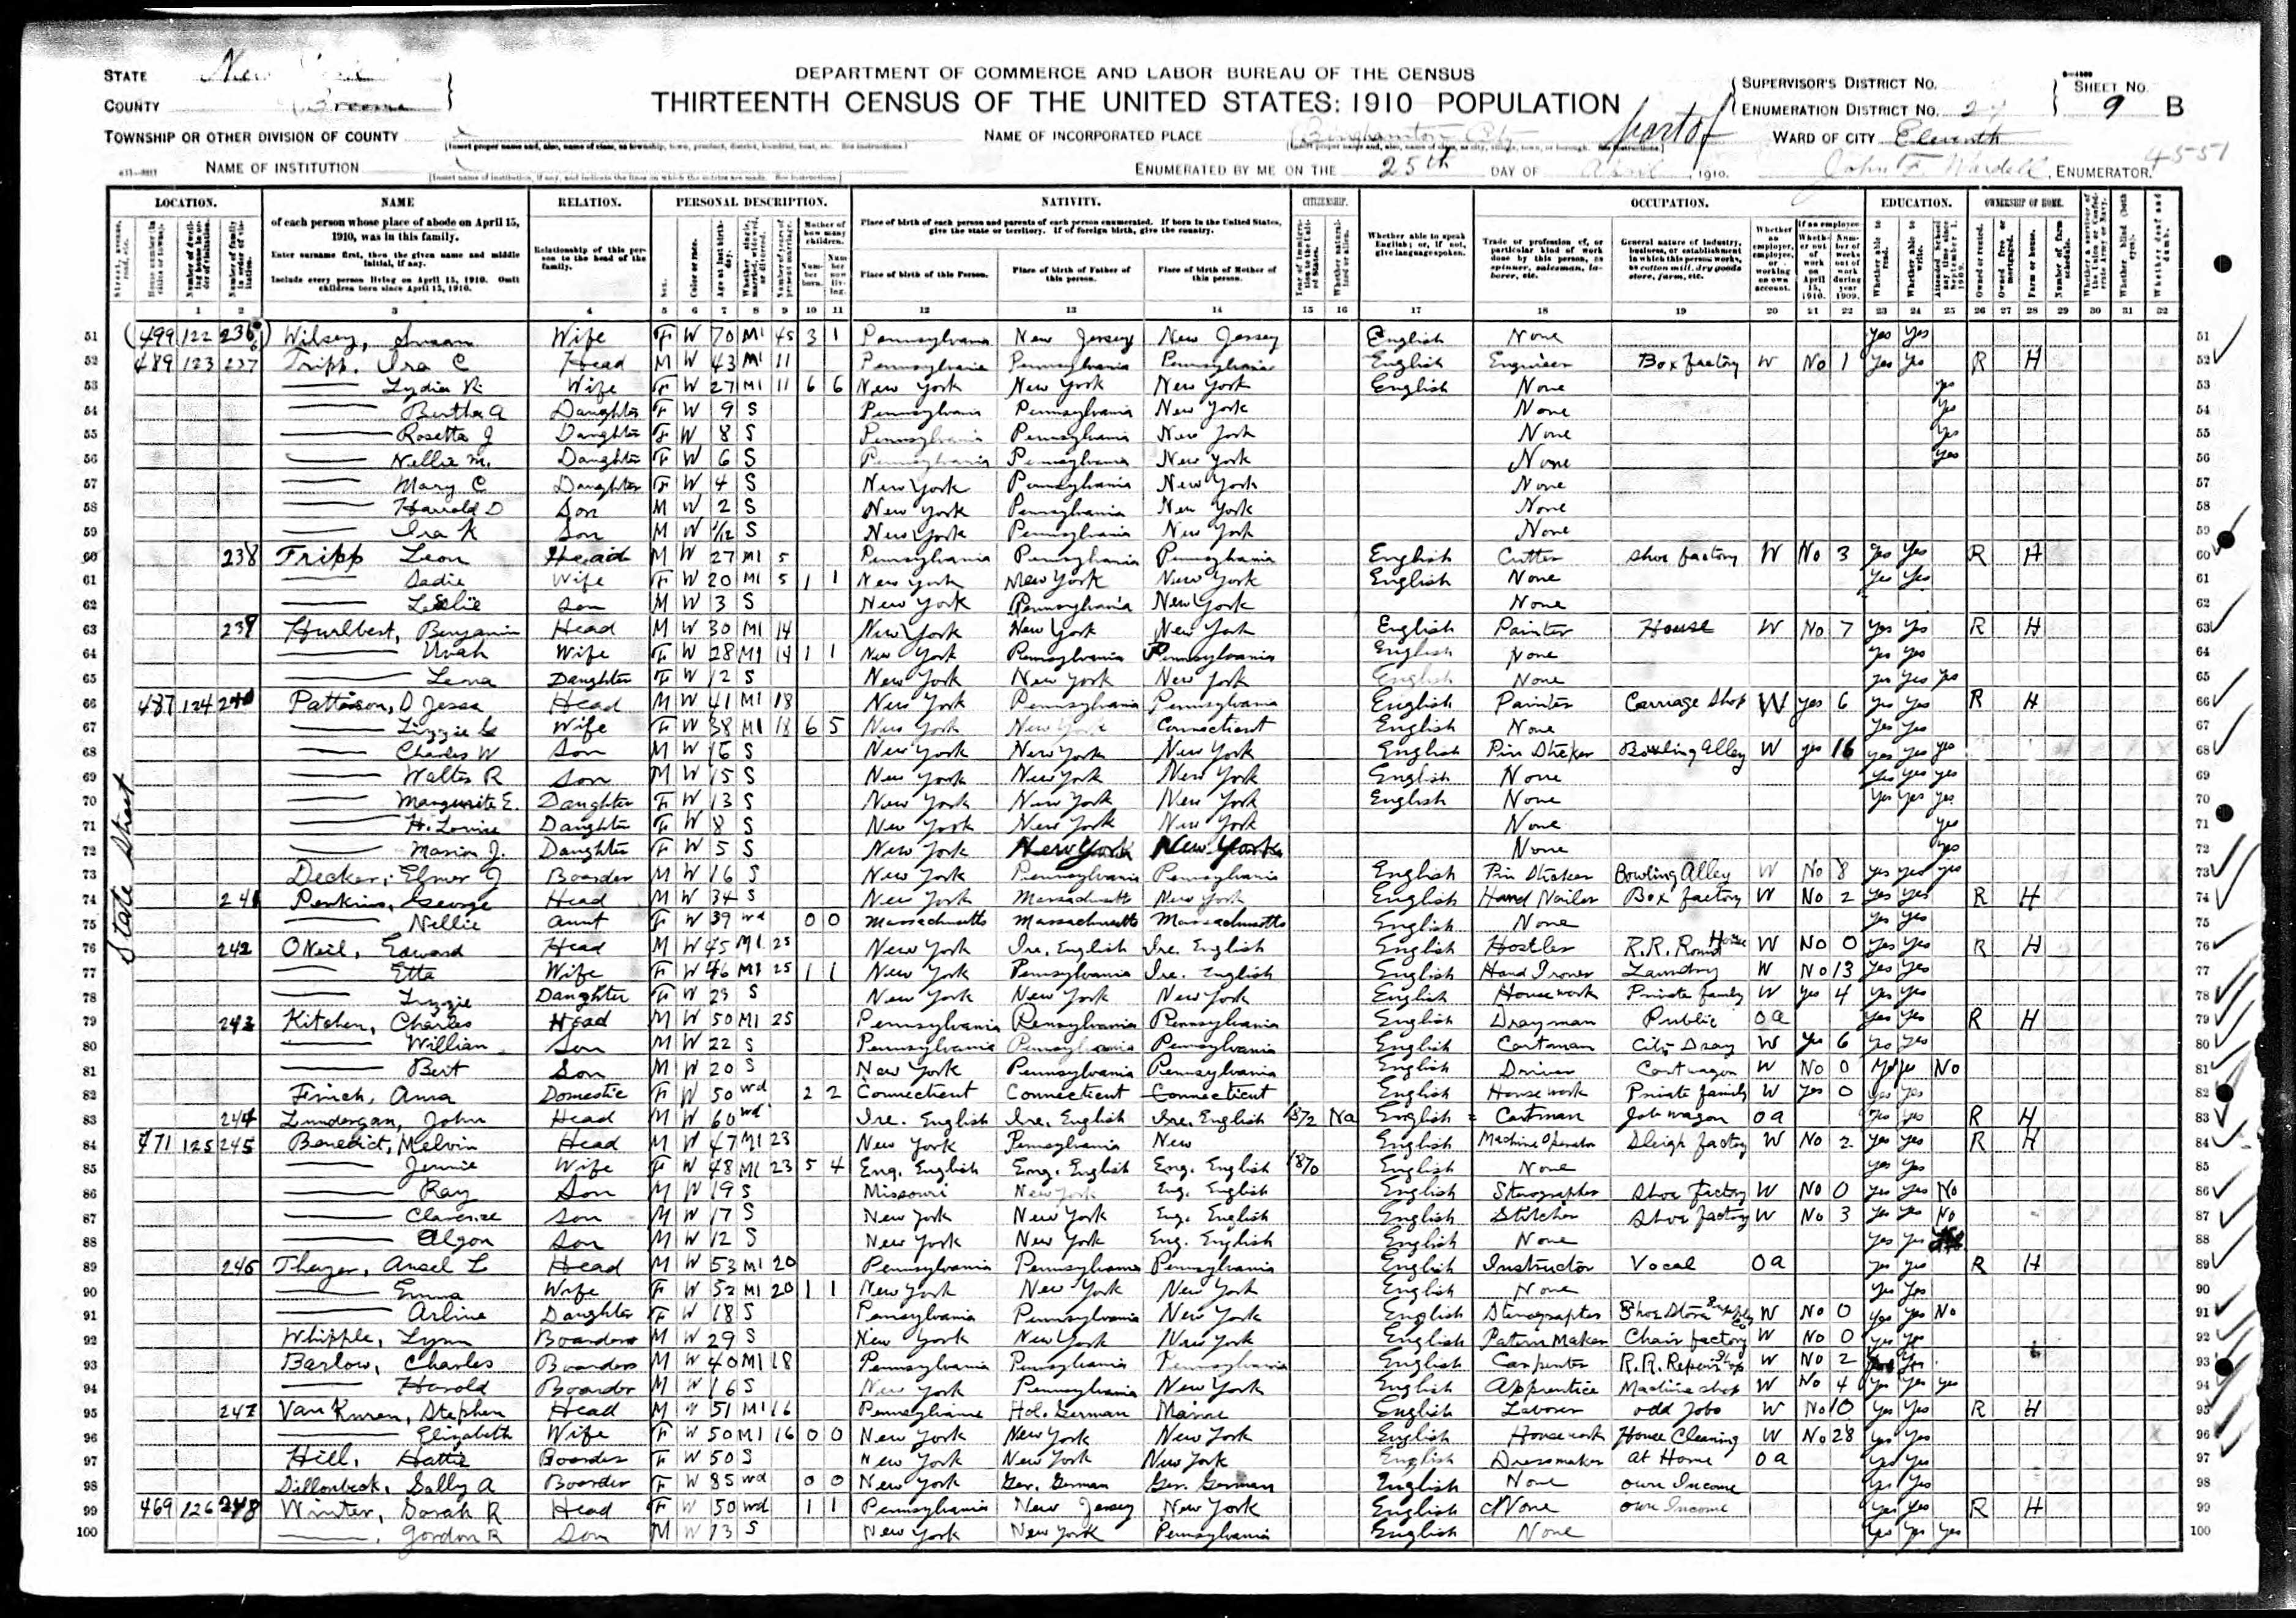 DEPARTMENT OF COMMERCE AND LABOR BUREAU OF THE CENSUS
THIRTEENTH CENSUS OF THE UNITED STATES: 1910 POPULATION
STATE New
COUNTY Broome
TOWNSHIP OR OTHER DIVISION OF COUNTY
NAME OF INSTITUTION
NAME OF INCORPORATED PLACE Binghamton City part of
ENUMERATED BY ME ON THE 25th DAY OF April, 1910.
SUPERVISOR'S DISTRICT NO.
ENUMERATION DISTRICT NO.
SHEET NO. 9 B
WARD OF CITY Eleventh
John F. Wardell, ENUMERATOR.
4551
LOCATION. NAME RELATION. PERSONAL DESCRIPTION. NATIVITY. CITIZENSHIP. OCCUPATION. EDUCATION. OWNERSHIP OF HOME.
of each person whose place of abode on April 15, 1910, was in this family.
Enter surname first, then the given name and middle initial, if any.
Include every person living on April 15, 1910. Omit children born since April 15, 1910.
Relationship of this person to the head of the family.
Place of birth of each person and parents of each person enumerated. If born in the United States, give the state or territory. If of foreign birth, give the country.
Place of birth of this Person. Place of birth of Father of this person. Place of birth of Mother of this person.
Whether able to speak English; or, if not, give language spoken.
Trade or profession of, or particular kind of work done by this person, as spinner, salesman, laborer, etc.
General nature of industry, business, or establishment in which this person works, as cotton mill, dry goods store, farm, etc.
1 2 3 4 5 6 7 8 9 10 11 12 13 14 15 16 17 18 19 20 21 22 23 24 25 26 27 28 29 30 31 32
State Street
51 499 122 236 Wilsey, Susan Wife F W 70 M1 45 3 1 Pennsylvania New Jersey New Jersey English None Yes Yes 51
52 489 123 237 Tripp, Ira C Head M W 43 M1 11 Pennsylvania Pennsylvania Pennsylvania English Engineer Box factory W No 1 Yes Yes R H 52
53 Lydia Wife F W 27 M1 11 6 6 New York New York New York English None yes 53
54 Bertha A Daughter F W 9 S Pennsylvania Pennsylvania New York None Yes 54
55 Rosetta J Daughter F W 8 S Pennsylvania Pennsylvania New York None Yes 55
56 Nellie M. Daughter F W 6 S Pennsylvania Pennsylvania New York None Yes 56
57 Mary C Daughter F W 4 S New York Pennsylvania New York None 57
58 Harrold D Son M W 2 S New York Pennsylvania New York None 58
59 Ira K Son M W 1/12 S New York Pennsylvania New York None 59
60 238 Tripp Leon Head M W 27 M1 5 Pennsylvania Pennsylvania Pennsylvania English Cutter Shoe factory W No 3 Yes Yes R H 60
61 Sadie Wife F W 20 M1 5 1 1 New York New York New York English None Yes Yes 61
62 Leslie Son M W 3 S New York Pennsylvania New York None 62
63 239 Hurlbert, Benjamin Head M W 30 M1 14 New York New York New York English Painter House W No 7 Yes Yes R H 63
64 Wife F W 28 M1 14 1 1 New York Pennsylvania Pennsylvania English None Yes Yes 64
65 Lena Daughter F W 12 S New York New York New York English None Yes Yes Yes 65
66 487 124 240 Patterson, D Jesse Head M W 41 M1 18 New York Pennsylvania Pennsylvania English Painter Carriage Shop W yes 6 yes Yes R H 66
67 Lizzie Wife F W 38 M1 18 6 5 New York New York Connecticut English None Yes Yes 67
68 Charles W Son M W 16 S New York New York New York English Pin Bowling Alley W yes 16 yes yes yes 68
69 Walter R Son M W 15 S New York New York New York English None Yes yes yes 69
70 Marguerite E. Daughter F W 13 S New York New York New York English None Yes Yes Yes 70
71 H. Louise Daughter F W 8 S New York New York New York None yes 71
72 Marion J. Daughter F W 5 S New York New York New York None yes 72
73 Decker, Elmer J Boarder M W 16 S New York Pennsylvania Pennsylvania English Pin Bowling Alley W No 8 yes yes yes 73
74 241 Perkins, George Head M W 34 S New York Massachusetts New York English Hand Nailer Box factory W No 2 Yes Yes R H 74
75 Nellie Aunt F W 39 wd 0 0 Massachusetts Massachusetts Massachusetts English None Yes Yes 75
76 242 ONeil, Edward Head M W 45 M1 25 New York Ire. English Ire. English English Hostler R.R. Round House W No 0 Yes Yes R H 76
77 Etta Wife F W 46 M1 25 1 1 New York Pennsylvania Ire. English English Hand Ironer Laundry W No 13 Yes Yes 77
78 Lizzie Daughter F W 23 S New York New York New York English Housework Private family W yes 4 Yes Yes 78
79 243 Kitchen, Charles Head M W 50 M1 25 Pennsylvania Pennsylvania Pennsylvania English Drayman Public O A Yes Yes R H 79
80 William Son M W 22 S Pennsylvania Pennsylvania Pennsylvania English Cartman City Dray W yes 6 Yes Yes 80
81 Bert Son M W 20 S New York Pennsylvania Pennsylvania English Driver Cart wagon W No 0 No 81
82 Finch, Anna Domestic F W 50 wd 2 2 Connecticut Connecticut Connecticut English House work Private family W Yes 0 Yes Yes 82
83 244 Lundergan, John Head M W 60 wd Ire. English Ire. English Ire. English 1872 Na English Cartman Job wagon O A Yes Yes R H 83
84 471 125 245 Benedict, Melvin Head M W 47 M1 23 New York Pennsylvania New English Machine Operator Sleigh factory W No 2 Yes Yes R H 84
85 Jennie Wife F W 48 M1 23 5 4 Eng. English Eng. English Eng. English 1870 English None Yes Yes 85
86 Ray Son M W 19 S Missouri New York Eng. English English Stenographer Shoe factory W No 0 Yes Yes No 86
87 Clarence Son M W 17 S New York New York Eng. English English Stitcher Shoe factory W No 3 Yes Yes No 87
88 Algon Son M W 12 S New York New York Eng. English English None Yes Yes 88
89 246 Thayer, Ansel L Head M W 53 M1 20 Pennsylvania Pennsylvania Pennsylvania English Instructor Vocal O A Yes Yes R H 89
90 Emma Wife F W 52 M1 20 1 1 New York New York New York English None Yes Yes 90
91 Arline Daughter F W 18 S Pennsylvania Pennsylvania New York English Stenographer Shoe Store Supply Co W No 0 Yes Yes No 91
92 Whipple, Lynn Boarder M W 29 S New York New York New York English Patern Maker Chair factory W No 0 Yes Yes 92
93 Barlow, Charles Boarder M W 40 M1 18 Pennsylvania Pennsylvania Pennsylvania English Carpenter R.R. Repair Shop W No 2 Yes Yes 93
94 Harold Boarder M W 16 S New York Pennsylvania New York English Apprentice Machine shop W No 4 Yes Yes yes 94
95 247 Van Kuren, Stephen Head M W 51 M1 16 Pennsylvania Hol. German Maine English Laborer Odd Jobs W No 10 Yes Yes R H 95
96 Elizabeth Wife F W 50 M1 16 0 0 New York New York New York English Housework House Cleaning W No 28 Yes Yes 96
97 Hill, Hattie Boarder F W 50 S New York New York New York English Dressmaker At Home O A Yes Yes 97
98 Dillenbeck, Sally A Boarder F W 85 wd 0 0 New York Ger. German Ger. German English None own Income Yes Yes 98
99 469 126 248 Winter, Sarah R Head F W 50 wd 1 1 Pennsylvania New Jersey New York English None own Income Yes Yes R H 99
100 Gordon R Son M W 13 S New York New York Pennsylvania English None Yes Yes Yes 100